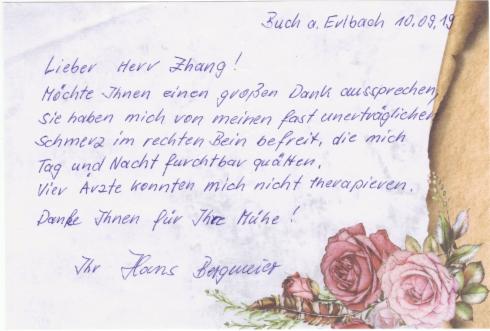 Buch a. Erlbach 10.09.19
Lieber Herr Zhang!
Möchte Ihnen einen großen Dank aussprechen,
Sie haben mich von meinen fast unerträglichen
Schmerz im rechten Bein befreit, die mich
Tag und Nacht furchtbar quälten.
Vier Ärzte konnten mich nicht therapieren.
Danke Ihnen für Ihre Mühe!
Ihr Hans Bergmeier